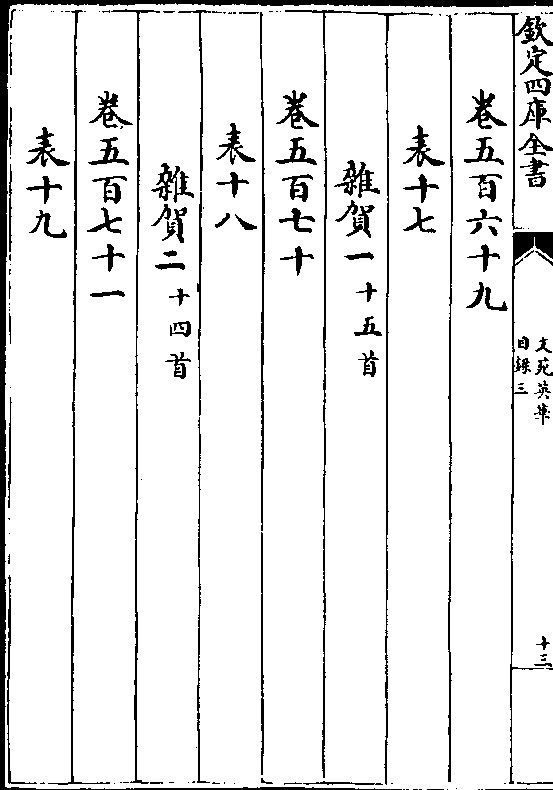 欽定四庫全書
文苑英華
目録三
十三
卷五百六十九
表十七
雜賀一十五首
卷五百七十
表十八
雜賀二十四首
卷五百七十一
表十九